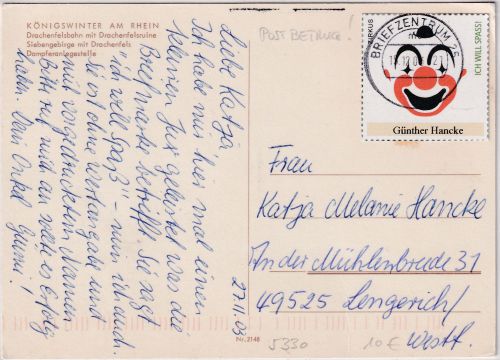 KÖNIGSWINTER AM RHEIN
Drachenfelsbahn mit Drachenfelsruine
Siebengebirge mit Drachenfels
Dampferanlegestelle
Liebe Katja
Ich habe mir hier mal einen
kleinen Jux geleistet was die
Briefmarke betrifft. Sie sagt
"Ich will Spaß" - nun ich auch.
Sie ist ohne Wertangabe und
mit vorgedrucktem Namen
Bitte ruf mich an wenn es Erfolg
haben. Dein Onkel
27.11.03
Nr. 2148
POST BETRUG!
ZIRKUS
ICH WILL SPASS!
BRIEFZENTRUM 26
Günther Hancke
Frau
Katja Melanie Hancke
An der Mühlenbreede 31
49525 Lengerich/
Westf.
5330
10 €